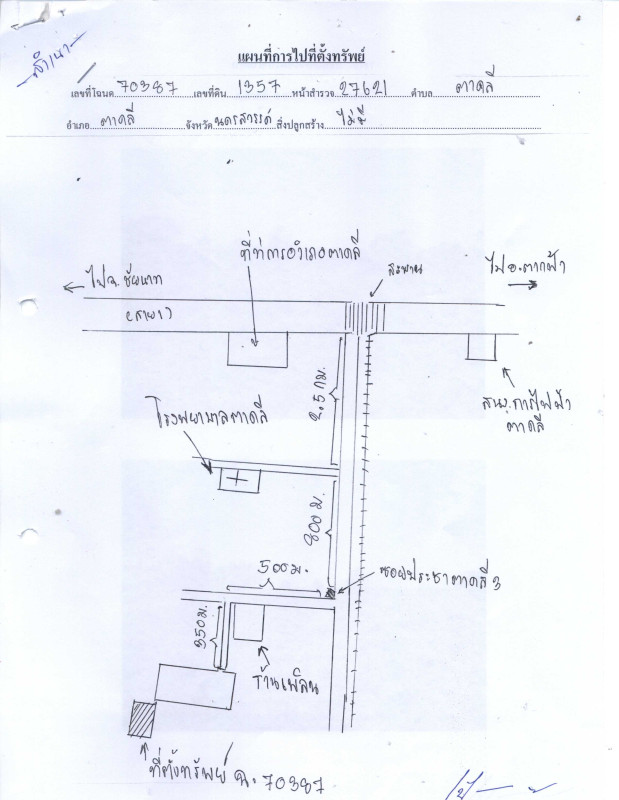 สำเนา
แผนที่การไปที่ตั้งทรัพย์
เลขที่โฉนด 70387 เลขที่ดิน 1357 หน้าสำรวจ 27621 ตำบล ตาคลี
อำเภอ ตาคลี จังหวัด นครสวรรค์ สิ่งปลูกสร้าง ไม่มี
ที่ว่าการอำเภอตาคลี
ไป จ.ชัยนาท
สะพาน
ไป อ.ตากฟ้า
(สาย 1)
2.5 กม.
สนง.การไฟฟ้า
ตาคลี
โรงพยาบาลตาคลี
800 ม.
500 ม.
ซอยประชาตาคลี 3
350 ม.
ร้านเพลิน
ที่ตั้งทรัพย์ ฉ. 70387